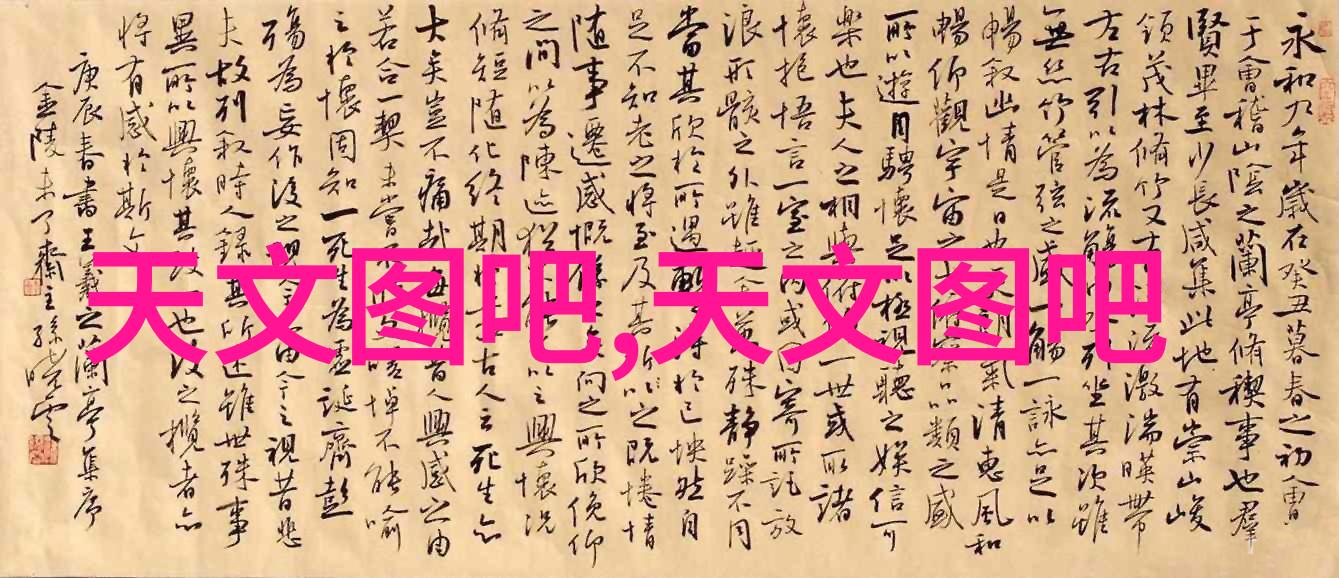 永和九年歲在癸丑暮春之初會
于會稽山陰之蘭亭脩禊事也群
賢畢至少長咸集此地有崇山峻
領茂林脩竹又流激湍暎帶
左右引以為流觴列坐其次雖
無絲竹管弦之盛一觴一詠亦足以
暢叙幽情是日也朗氣清惠風和
暢仰觀宇宙之類之盛
所以遊目騁懷足以極視聽之娛信可
樂也夫人之相與俯一世或取諸
懷抱悟言一室之內或因寄所託放
浪形骸之外雖殊靜躁不同
當其欣於所遇得於己怏然自
足不知老之將至及其所之既惓情
隨事遷感慨向之所欣俛仰
之間以為陳迹猶以之興懷況
脩短隨化終期於古人云死生亦
大矣豈不痛哉每昔人興感之由
若合一契未嘗不嗟悼不能喻
之於懷固知一死生為虛誕齊彭
殤為妄作後之由今之視昔悲
夫故列叙時人錄其所述雖世殊事
異所以興懷其致一也後之攬者亦
將有感於斯文
庚辰春書王羲之蘭亭集序
金陵未了齋主孫曉雲
天文图吧,天文图吧